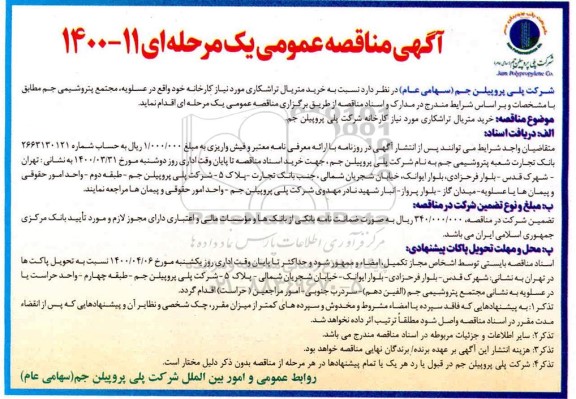 آگهی مناقصه عمومی یک مرحله‌ای ۱۱-۱۴۰۰
شرکت پلی پروپیلن جم (سهامی عام)
Jam Polypropylene Co.
شرکت پلی پروپیلن جم (سهامی عام) در نظر دارد نسبت به خرید متریال تراشکاری مورد نیاز کارخانه خود واقع در عسلویه، مجتمع پتروشیمی جم مطابق
با مشخصات و بر اساس شرایط مندرج در مدارک و اسناد مناقصه از طریق برگزاری مناقصه عمومی یک مرحله ای اقدام نماید.
موضوع مناقصه: خرید متریال تراشکاری مورد نیاز کارخانه شرکت پلی پروپیلن جم
الف: دریافت اسناد:
متقاضیان واجد شرایط می توانند پس از انتشار آگهی در روزنامه با ارائه معرفی نامه معتبر و فیش واریزی به مبلغ ۱/۰۰۰/۰۰۰ ریال به حساب شماره ۲۶۶۳۱۳۰۱۲۱
بانک تجارت شعبه پتروشیمی جم به نام شرکت پلی پروپیلن جم، جهت خرید اسناد مناقصه تا پایان وقت اداری روز دوشنبه مورخ ۱۴۰۰/۰۳/۳۱ به نشانی: تهران
- شهرک قدس - بلوار فرحزادی، بلوار ایوانک، خیابان شجریان شمالی، جنب بانک تجارت - پلاک ۵ - شرکت پلی پروپیلن جم - طبقه دوم - واحد امور حقوقی
و پیمان ها یا عسلویه - میدان گاز - بلوار پرواز - انبار شهید نادر مهدوی شرکت پلی پروپیلن جم - واحد امور حقوقی و پیمان ها مراجعه نمایند.
ب: مبلغ و نوع تضمین شرکت در مناقصه:
تضمین شرکت در مناقصه، ۳۴۰/۰۰۰/۰۰۰ ریال به صورت ضمانت نامه بانکی از بانک ها و موسسات مالی و اعتباری دارای مجوز لازم و مورد تأیید بانک مرکزی
جمهوری اسلامی ایران می باشد.
پ: محل و مهلت تحویل پاکات پیشنهادی:
اسناد مناقصه بایستی توسط اشخاص مجاز تکمیل، امضاء و ممهور شود و حداکثر تا پایان وقت اداری روز یکشنبه مورخ ۱۴۰۰/۰۴/۰۶ نسبت به تحویل پاکت ها
در تهران به نشانی: شهرک قدس - بلوار فرحزادی - بلوار ایوانک - خیابان شجریان شمالی - پلاک ۵ - شرکت پلی پروپیلن جم - طبقه چهارم - واحد حراست یا
در عسلویه به نشانی مجتمع پتروشیمی جم (الفین دهم) - درب جنوبی - امور مراجعین (حراست) اقدام گردد.
تذکر۱: به پیشنهادهایی که فاقد سپرده یا امضاء، مشروط و مخدوش و سپرده های کمتر از میزان مقرر، چک شخصی و نظایر آن و پیشنهادهایی که پس از انقضاء
مدت مقرر در اسناد مناقصه واصل شود مطلقاً ترتیب اثر داده نخواهد شد.
تذکر۲: سایر اطلاعات و جزئیات مربوطه در اسناد مناقصه مندرج می باشد.
تذکر۳: هزینه انتشار این آگهی بر عهده برنده/ برندگان نهایی مناقصه خواهد بود.
تذکر۴: شرکت پلی پروپیلن جم در قبول یا رد هر یک یا تمام پیشنهادها در هر مرحله از مناقصه بدون ذکر دلیل مختار است.
روابط عمومی و امور بین الملل شرکت پلی پروپیلن جم (سهامی عام)